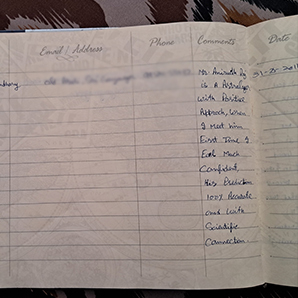 Email / Address Phone Comments Date
Mr. Anirudh
Is A Astrologer
with Positive
Approch, when
I meet him
First Time I
Feel Much
Confident,
His Prediction
100% Accurate
and with
Scientific
Connection